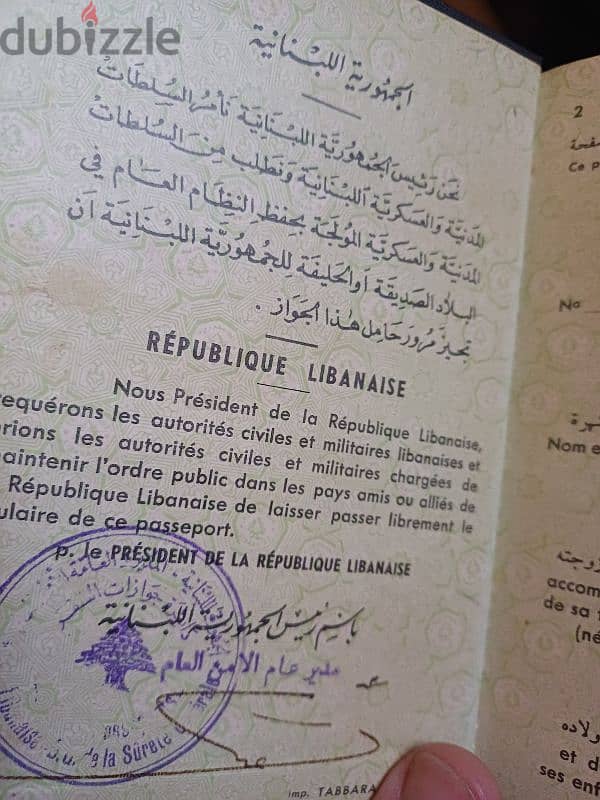 dubizzle
الجمهورية اللبنانية
نحن رئيس الجمهورية اللبنانية نأمر السلطات
المدنية والعسكرية اللبنانية ونطلب من السلطات
المدنية والعسكرية المولجة بحفظ النظام العام في
البلاد الصديقة او الحليفة للجمهورية اللبنانية ان
تجيز مرور حامل هذا الجواز .
RÉPUBLIQUE LIBANAISE
Nous Président de la République Libanaise,
requérons les autorités civiles et militaires libanaises et
rions les autorités civiles et militaires chargées de
maintenir l'ordre public dans les pays amis ou alliés de
République Libanaise de laisser passer librement le
ulaire de ce passeport.
p. le PRÉSIDENT DE LA RÉPUBLIQUE LIBANAISE
باسم رئيس الجمهورية اللبنانية
مدير عام الامن العام
de la Sûreté
imp. TABBARA
2
صفحة
Ce p
No
شهرة
Nom e
زوجته
accom
de sa f
(né
ولاده
et d
ses enf